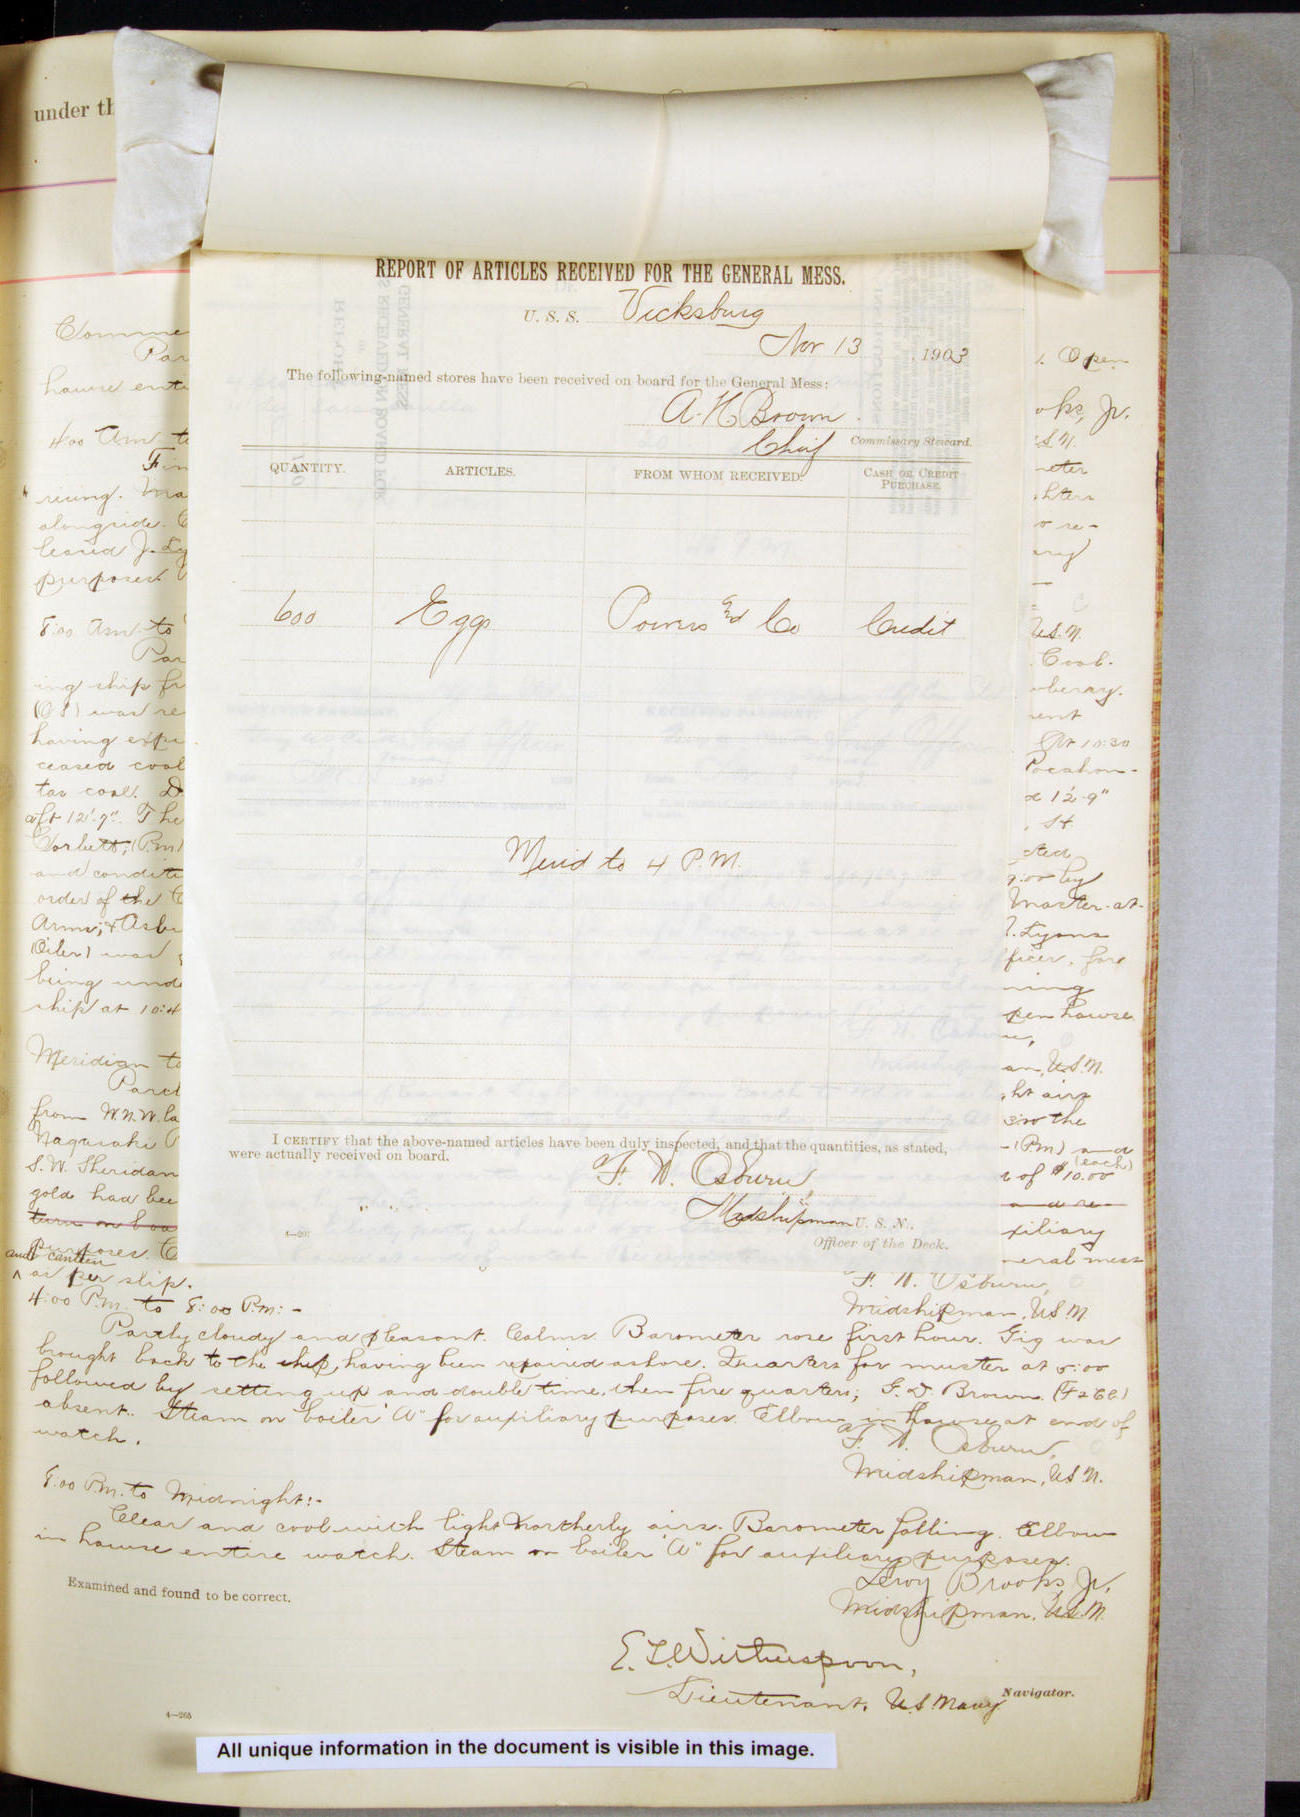 under th
REPORT OF ARTICLES RECEIVED FOR THE GENERAL MESS.
U. S. S. Vicksburg
Nov 13, 1903
The following-named stores have been received on board for the General Mess:
A. H. Brown
Chief Commissary Steward.
QUANTITY. ARTICLES. FROM WHOM RECEIVED. CASH OR CREDIT PURCHASE.
600 Eggs Powers and Co Credit
Merid to 4 P.M.
I CERTIFY that the above-named articles have been duly inspected, and that the quantities, as stated,
were actually received on board.
F. W. Osburn,
Midshipman U. S. N.,
Officer of the Deck.
4—207
Comme
Par
hawse enti
4:00 Am to
rising. Ma
alongside. C
leased J. Ly
purposes.
8:00 Am to
Par
ing ship fr
(OS) was re
having expi
ceased coal
tas coal. D
aft 12'-9". The
Corbett, (P.m)
and conditi
order of the C
Arms; & Asbu
(Oiler) was
being unde
ship at 10:4
Meridian to
Partl
from W.N.W. la
Nagasaki
S. W. Sheridan
gold had bee
turn on boa
purposes. C
and canteen
as per slip.
. Open
oks, Jr.
S.N.
meter
hters
o re-
ary
U.S.N.
Coal-
ent
At 10:30
Pocahon-
d 12'-9"
, St
cted
9:00 by
Master-at-
J. Lyons
fficer, for
ning
pen hawse
an, U.S.N.
ght airs
the
(P.m) and
(each)
of $10.00
and re-
xiliary
neral mess
F. W. Osburn,
Midshipman, U.S.N.
4:00 P.m. to 8:00 P.m:-
Partly cloudy and pleasant. Calms. Barometer rose first hour. Gig was
brought back to the ship, having been repaired ashore. Quarters for muster at 5:00
followed by setting up and double time, then fire quarters; G. D. Brown (F2Cl)
absent. Steam on boiler "A" for auxiliary purposes. Elbow in hawse at end of
watch.
F. W. Osburn,
Midshipman, U.S.N.
8:00 P.m. to Midnight:-
Clear and cool with light Northerly airs. Barometer falling. Elbow
in hawse entire watch. Steam on boiler "A" for auxiliary purposes.
Leroy Brooks, Jr.
Midshipman, U.S.N.
Examined and found to be correct.
E. T. Witherspoon,
Lieutenant, U.S. Navy Navigator.
4—265
All unique information in the document is visible in this image.